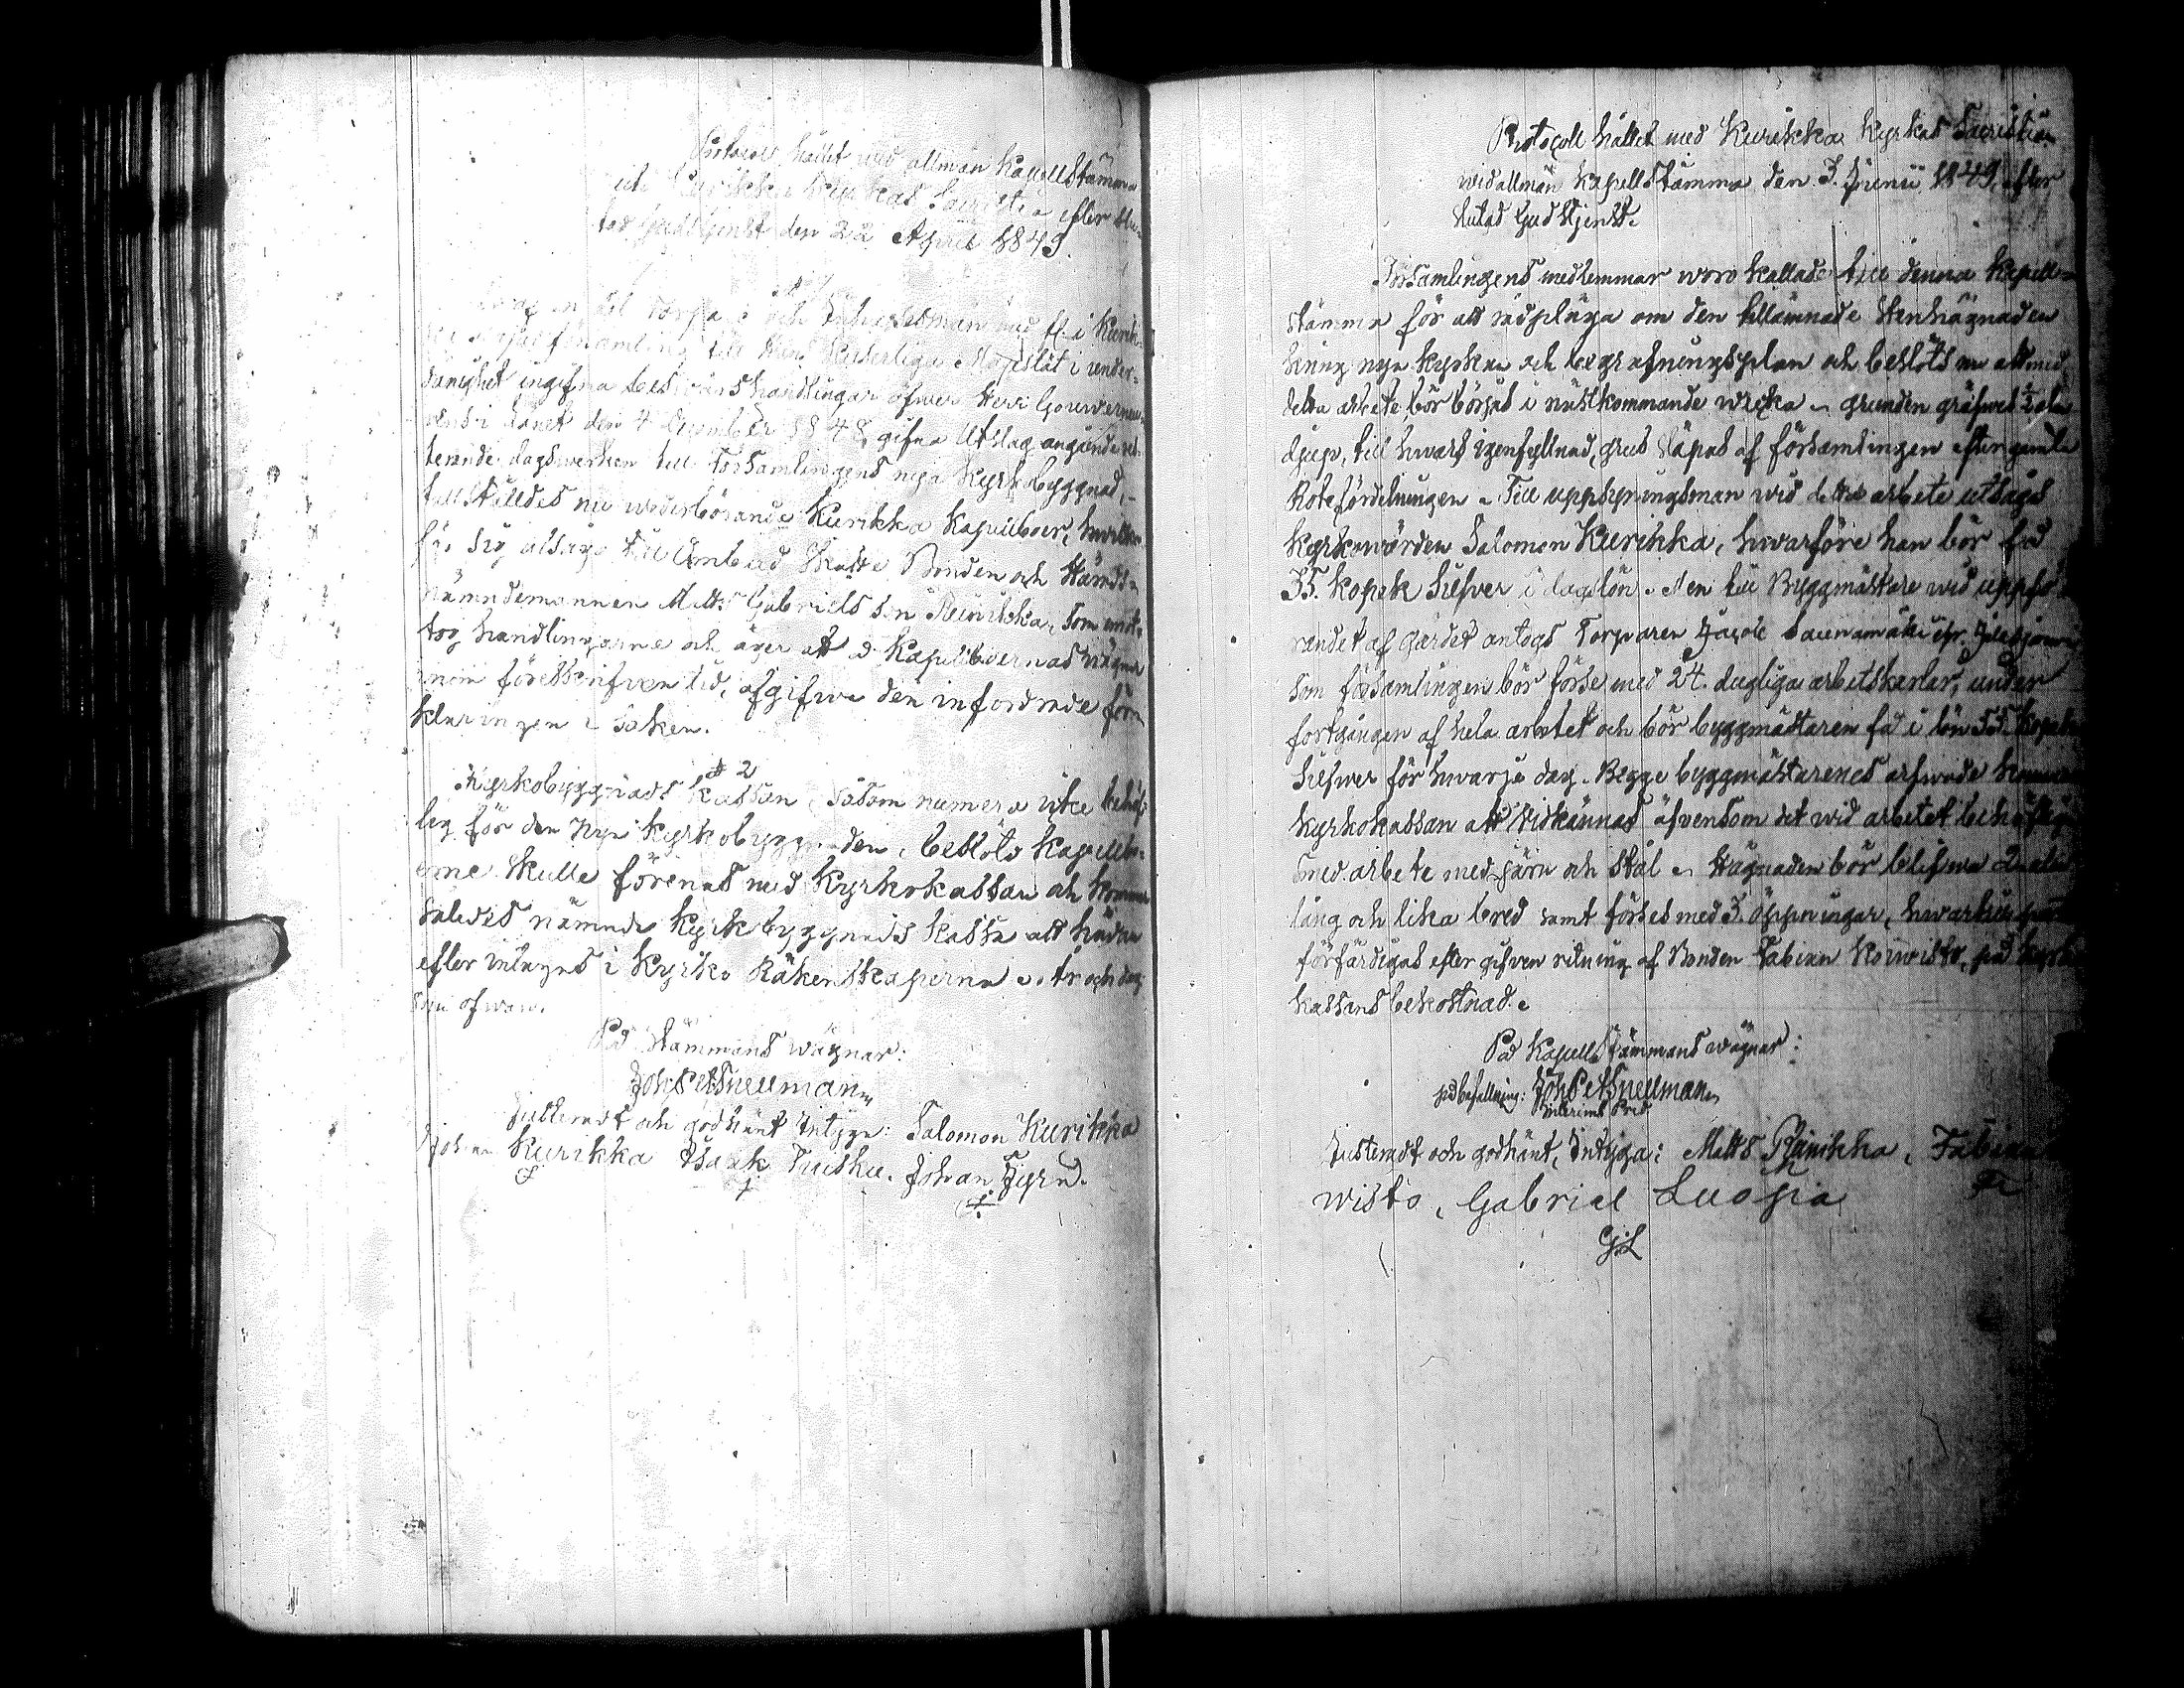 Protocoll hållet vid allmän Kapellstämma
uti Kurikka Kyrkas Sacristia efter slu-
tad Gudstjenst den 22 April 1849.
§ 1
Torpare och Inhyseman med fl. i Kurik-
ka till Hans Kejserliga Majestät i under-
dånighet ingifna besvärshandlingar öfwer Herr Gouverneu-
rens i Länet den 4 December 1848 gifna Utslag angående res-
terande dagswerken till Församlingens nya Kyrkobyggnad, -
tillställdes nu wederbörande Kurikka Kapellboer, hwilka
för sig utsågo till Ombud Skatte Bonden och Härads-
nämndemannen Matts Gabriels son Reinikka, som emot-
tog handlingarne och äger att å Kapellboernas wägnar
inom föreskrifven tid, afgifwa den infordrade för-
klaringen i saken.
§ 2
Kyrkobyggnads Kassan, såsom numera icke behöf-
lig för den nya Kyrkobyggnaden, beslöto Kapellbo-
erne skulle förenas med Kyrkokassan och kommer
således nämnde Kyrkbyggnads kassa att hädan
efter intagas i Kyrko Räkenskaperna. År och dag
som ofwan.
På Stämmans wägnar:
Joh Pet Snellman
Justeradt och godkänt Intyga: Salomon Kurikka
Johan Kurikka Isaak Tuisku. Johan Jyrä.
Protocoll hållet med Kurikka Kyrkas Sacristia
wid allmän Kapellstämma den 3. Junii 1849, efter
slutad Gudstjenst.
Församlingens medlemmar woro kallade till denna Kapell-
stämma för att rådpläga om den tillämnade Stenhägnaden
kring nya kyrkan och begrafningsplan och beslöts nu att med
detta arbete bör börjas i nästkommande wecka - grunden gräfwes 1/2 aln
djup, till hwars igenfyllnad, grus släpas af församlingen efter gamla
Rotefördelningen - Till uppsyningsman wid detta arbete utsågs
Kyrkowärden Salomon Kurikka, hwarföre han bör få
35. kopek Silfver i dagslön. Men till Byggmästare wid uppfö-
randet af gärdet antogs Torparen Jacob
som församlingen bör förse med 24. dugliga arbetskarlar, under
fortgången af hela arbetet och bör byggmästaren få i lön 55. kopek
Silfwer för hwarje dag. Begge byggmästarenes arfwode kommer
kyrkokassan att widkännas äfvensom det wid arbetet behöflig
smed arbete med järn och stål - Hägnaden bör blifwa 2 aln
lång och lika bred samt förses med 3. öppningar, hwartill
förfärdigas efter gifven ritning af Bonden Fabian Koiwisto, på kyrk
kassans bekostnad.
På Kapellstämmans wägnar:
på befallning: Joh Pet Snellman
Interims Pred.
Justeradt och godkänt, Intyga: Matts Reinikka, Fabian
wisto, Gabriel Luopa
G.L